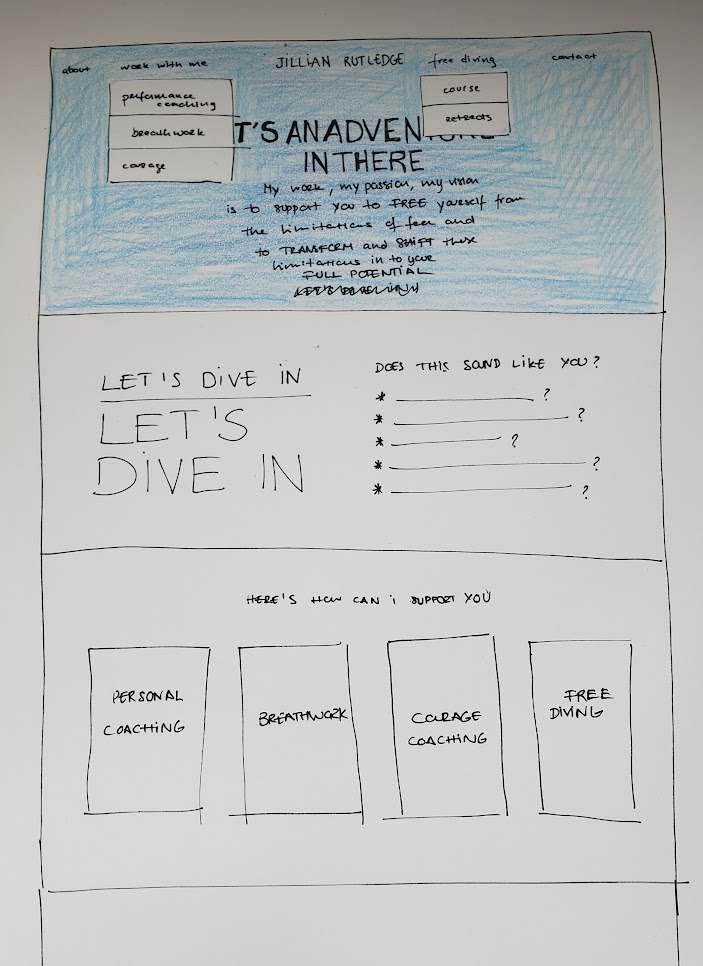 about work with me JILLIAN RUTLEDGE free diving contact
performance
coaching
breathwork
courage
course
retreats
T'S AN ADVENTURE
IN THERE
My work, my passion, my vision
is to support you to FREE yourself from
the limitations of fear and
to TRANSFORM and SHIFT these
limitations in to your
FULL POTENTIAL
LET'S DIVE IN
LET'S
DIVE IN
DOES THIS SOUND LIKE YOU?
* ?
* ?
* ?
* ?
* ?
HERE'S HOW CAN i SUPPORT YOU
PERSONAL
COACHING
BREATHWORK
COURAGE
COACHING
FREE
DIVING